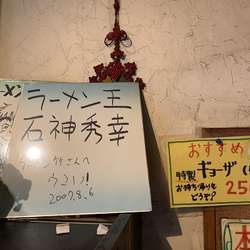 ラーメン王
石神秀幸
竹さんへ
ウマイ!!
2007.8.6
おすすめ
特製 ギョーザ
お持ち帰りも
どうぞ!
25